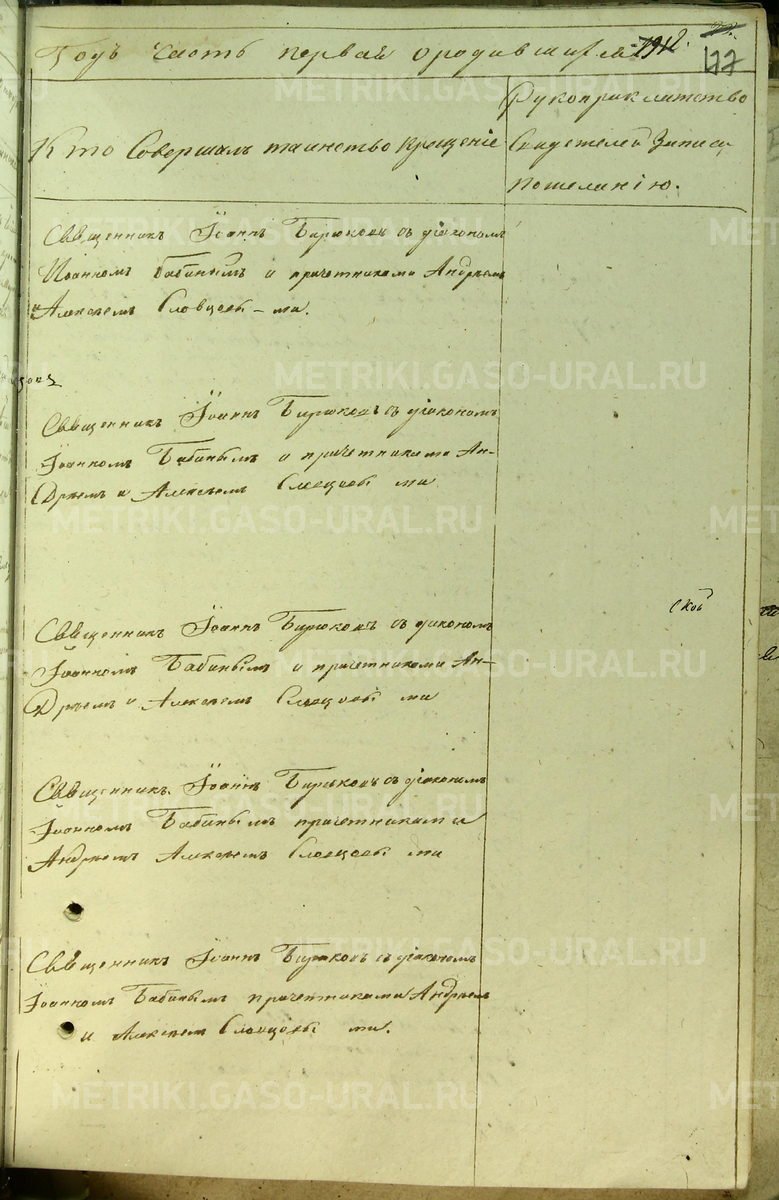 Годъ часть первая о родившихся
177
Кто Совершалъ таинство крещенiе
Рукоприкладство
Свидетелей Записи
пожеланiю.
Священникъ Iоаннъ Бирюковъ съ дiакономъ
Iоанномъ Бабинымъ и причетниками Андреемъ
и Алексеемъ Словцовы-ми.
Священникъ Iоаннъ Бирюковъ съ дiакономъ
Iоанномъ Бабинымъ и причетниками Ан-
Дреемъ и Алексеемъ Словцовы ми
Священникъ Iоаннъ Бирюковъ съ дiакономъ
Iоанномъ Бабинымъ и причетниками Ан-
Дреемъ и Алексеемъ Словцовы ми
Священникъ Iоаннъ Бирюковъ съ дiакономъ
Iоанномъ Бабинымъ причетниками
Андреемъ Алексеемъ Словцовы ми
Священникъ Iоаннъ Бирюковъ съ дiакономъ
Iоанномъ Бабинымъ причетниками Андреемъ
и Алексеемъ Словцовы ми.
METRIKI.GASO-URAL.RU